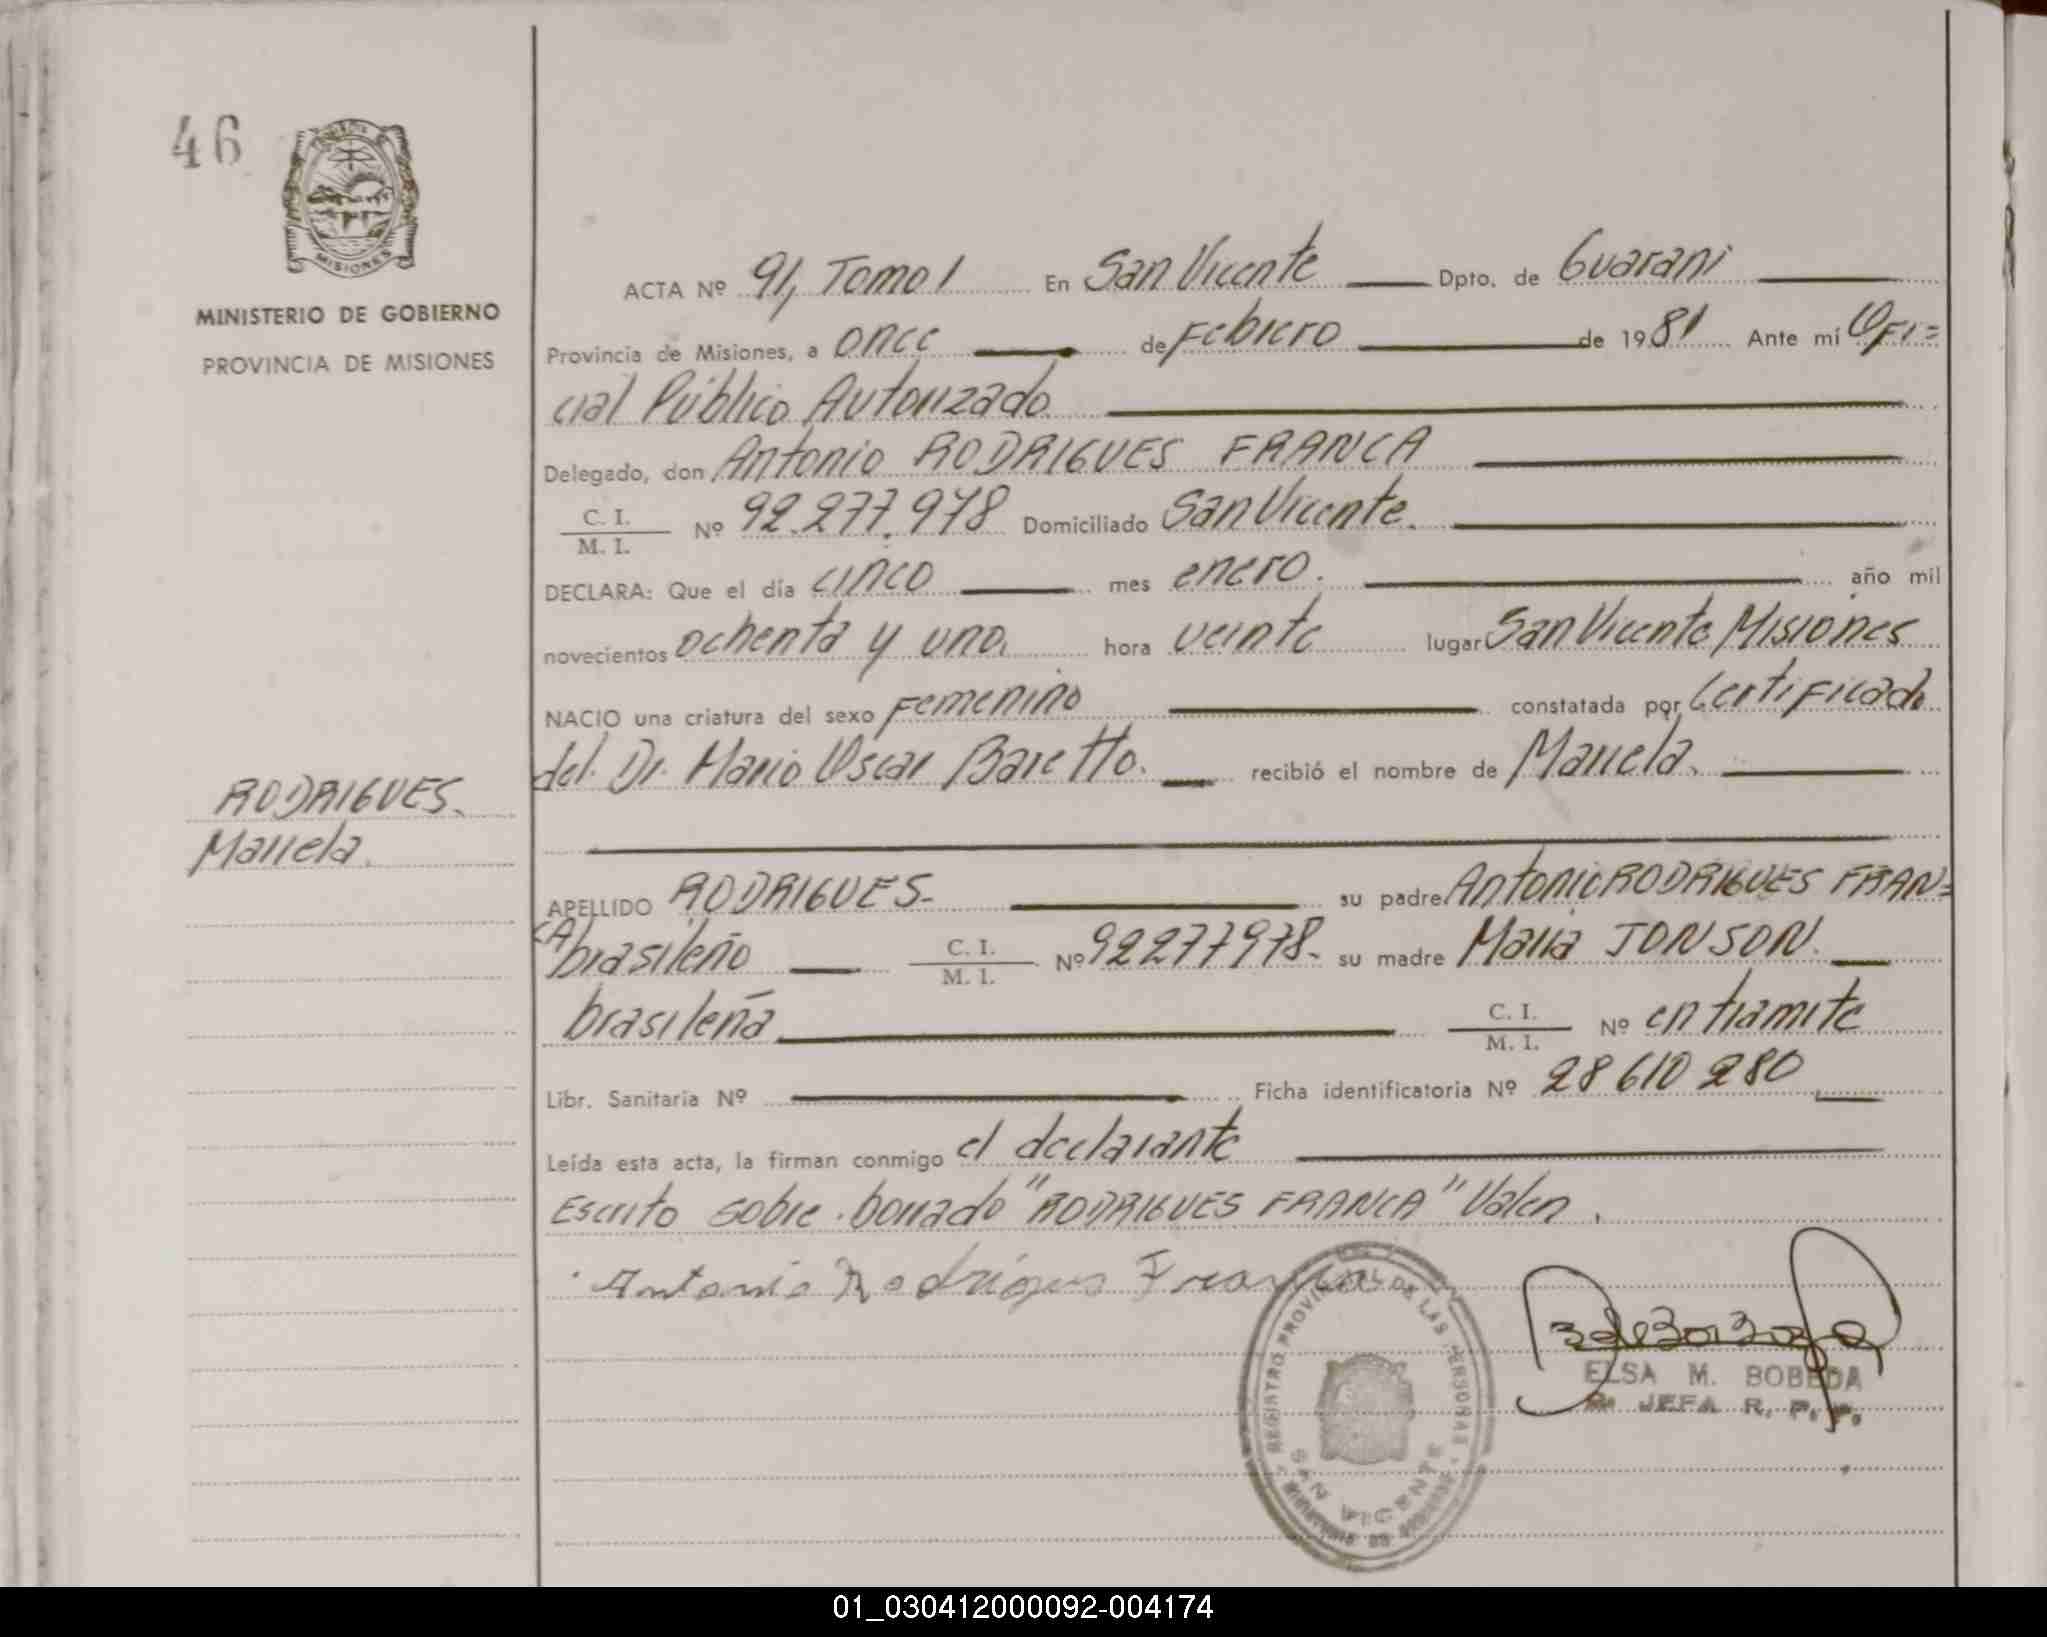 46
MISIONES
MINISTERIO DE GOBIERNO
PROVINCIA DE MISIONES
RODRIGUES.
Mariela.
ACTA Nº 91, Tomo 1 En San Vicente Dpto. de Guarani
Provincia de Misiones, a once de Febrero de 1981 Ante mí Ofi=
cial Público Autorizado
Delegado, don Antonio RODRIGUES FRANCA
C. I. / M. I. Nº 92.277.978 Domiciliado San Vicente.
DECLARA: Que el día cinco mes enero. año mil
novecientos ochenta y uno. hora veinte lugar San Vicente Misiones
NACIO una criatura del sexo Femenino constatada por Certificado
del. Dr. Mario Oscar Baretto. recibió el nombre de Mariela.
APELLIDO RODRIGUES- su padre Antonio RODRIGUES FRAN=
CA) brasileño C. I. / M. I. Nº 92277978- su madre Maria JONSON.
brasileña C. I. / M. I. Nº en tramite
Libr. Sanitaria Nº Ficha identificatoria Nº 28 610 280
Leída esta acta, la firman conmigo el declarante
Escrito sobre borrado "RODRIGUES FRANCA" Valen.
Antonio Rodrigues Franca
REGISTRO PROVINCIAL DE LAS PERSONAS
SAN VICENTE
ELSA M. BOBEDA
JEFA R. P. P.
01_030412000092-004174